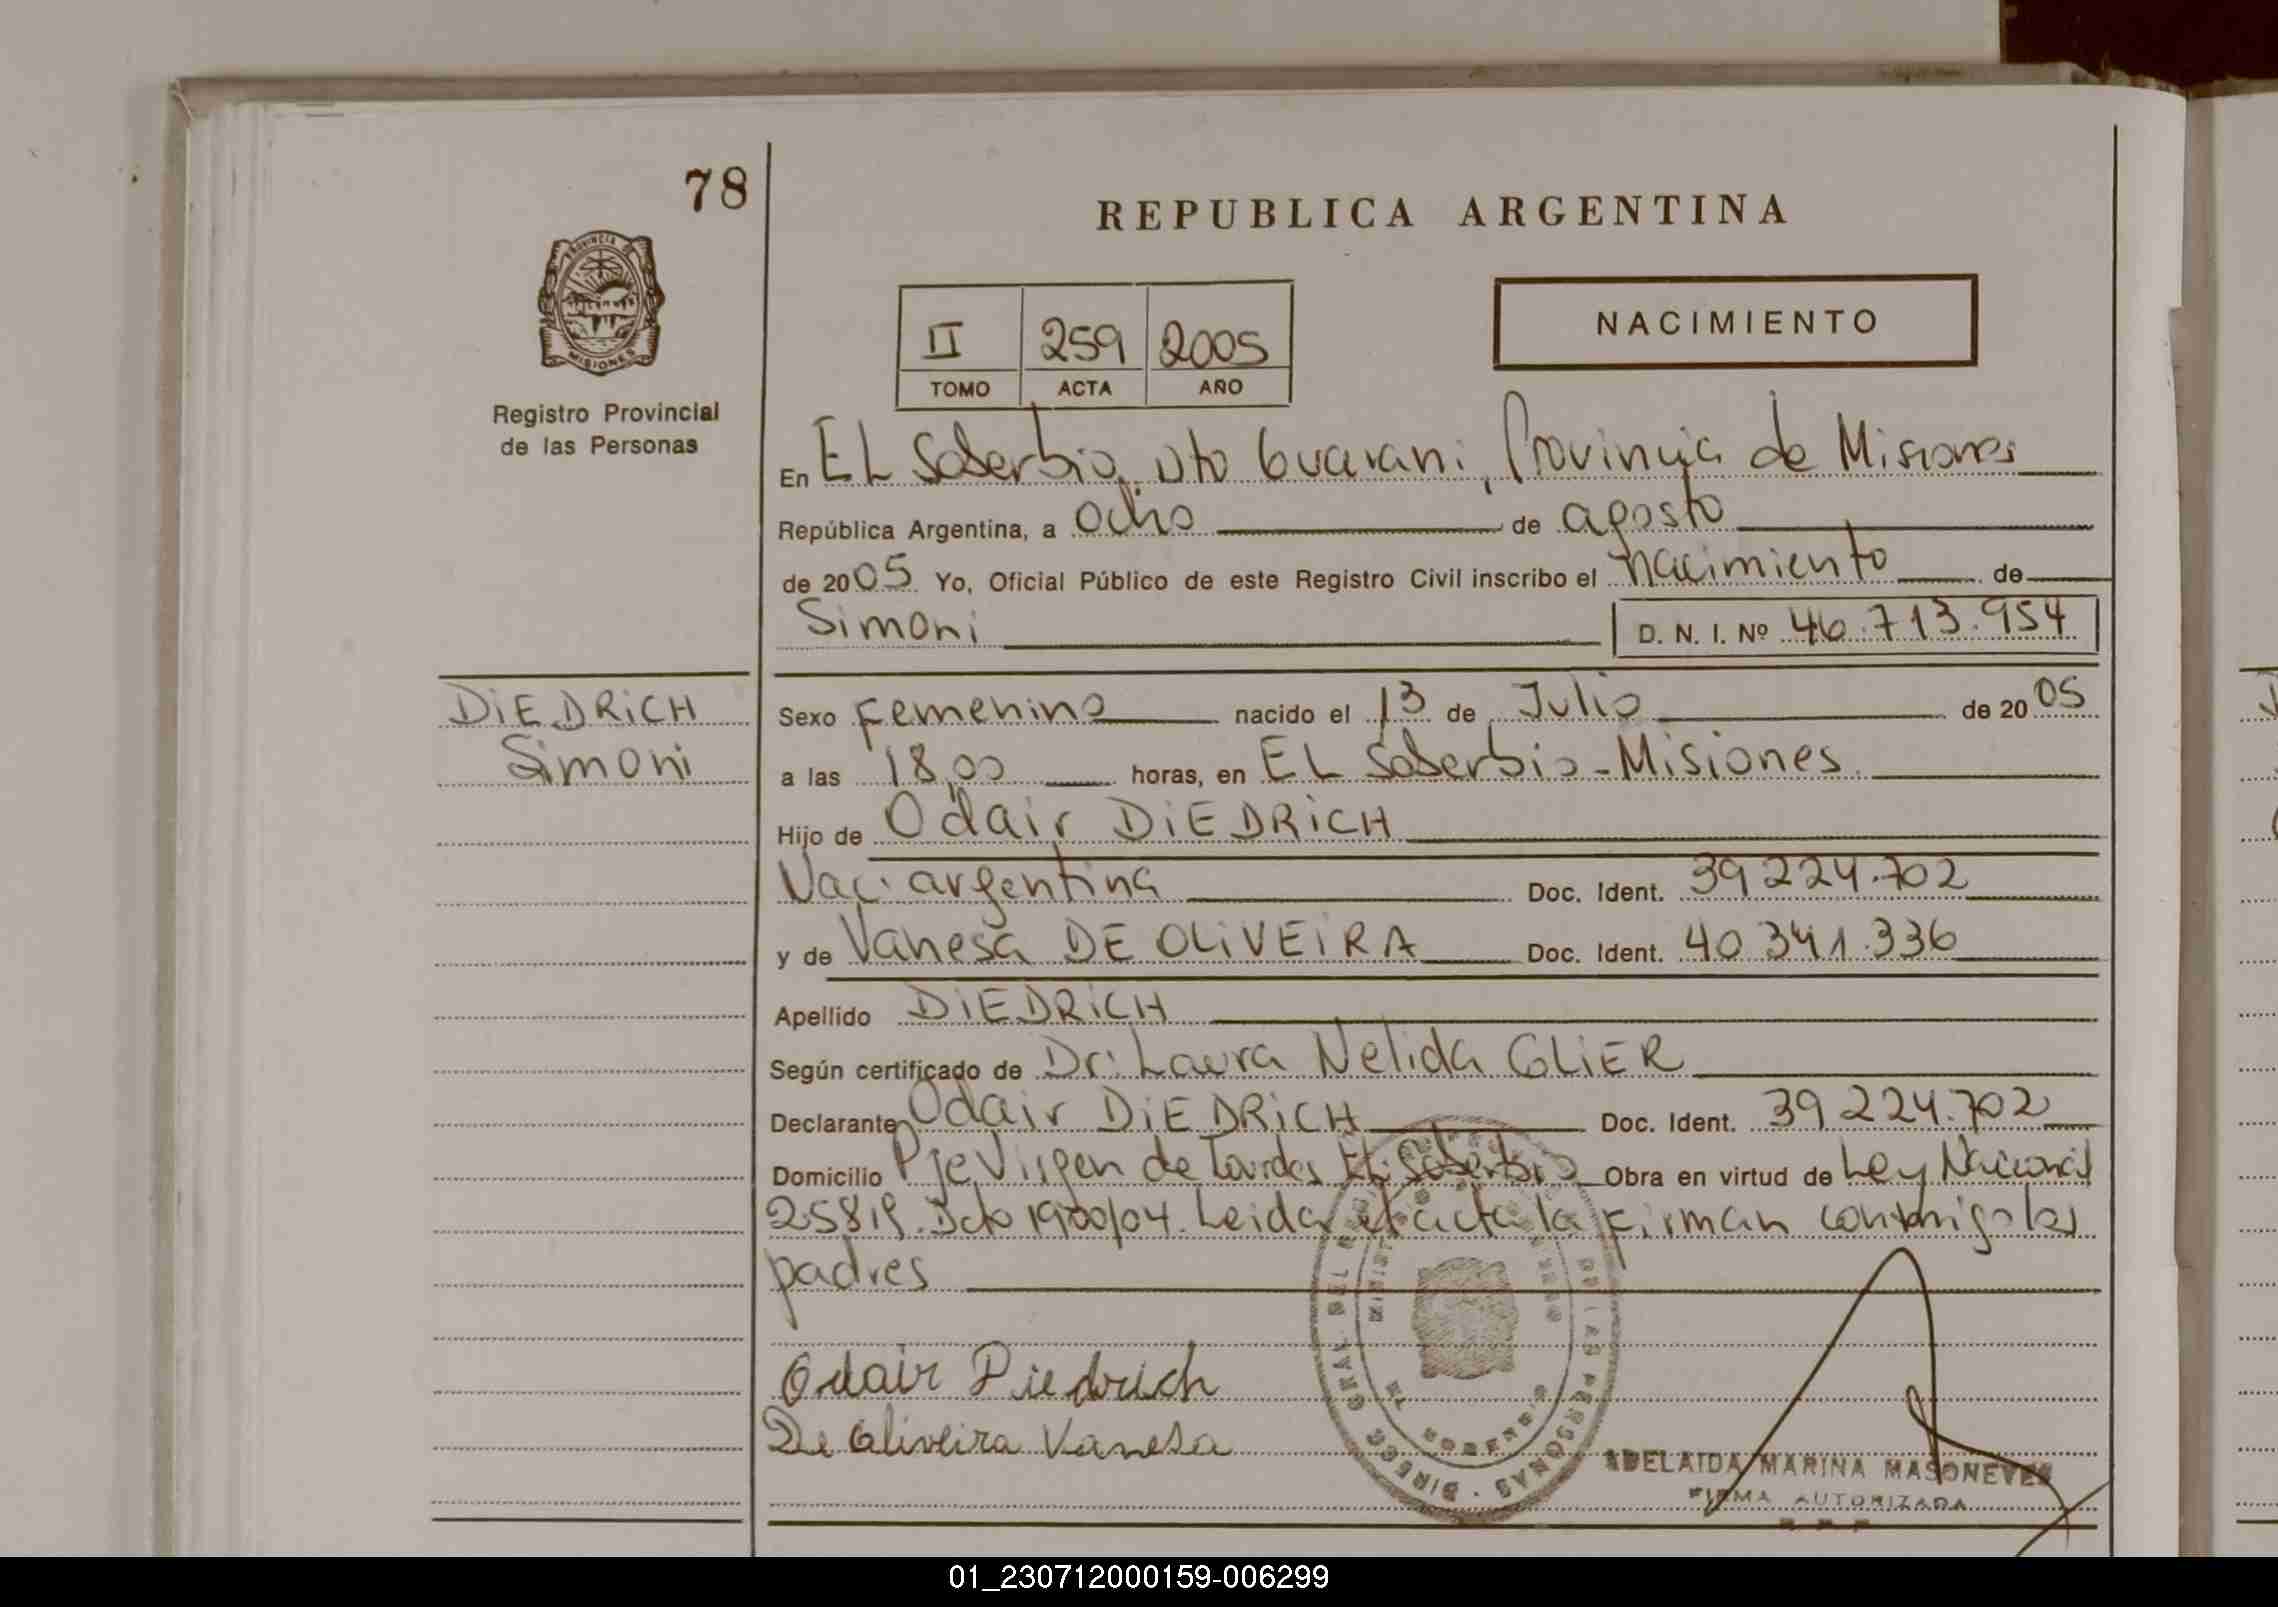 78
REPUBLICA ARGENTINA
PROVINCIA DE
MISIONES
Registro Provincial
de las Personas
II 259 2005
TOMO ACTA AÑO
NACIMIENTO
En EL Soberbio, Dto Guarani, Provincia de Misiones
República Argentina, a ocho de agosto
de 2005 Yo, Oficial Público de este Registro Civil inscribo el nacimiento de
Simoni D. N. I. Nº 46.713.954
DiEDRiCH
Simoni
Sexo Femenino nacido el 13 de Julio de 2005
a las 18,00 horas, en EL Soberbio - Misiones
Hijo de Odair DiEDRiCH
Nac. argentina Doc. Ident. 39 224.702
y de Vanesa DE OLiVEiRA Doc. Ident. 40 341.336
Apellido DiEDRiCH
Según certificado de Dr. Laura Nelida GLiER
Declarante Odair DiEDRiCH Doc. Ident. 39 224.702
Domicilio Pje Virgen de Lourdes EL Soberbio Obra en virtud de Ley Nacional
25819. Dcto 1900/04. Leida el acta la firman conmigo los
padres
Odair Diedrich
De Oliveira Vanesa
ADELAIDA MARINA MASONEVES
FIRMA AUTORIZADA
01_230712000159-006299